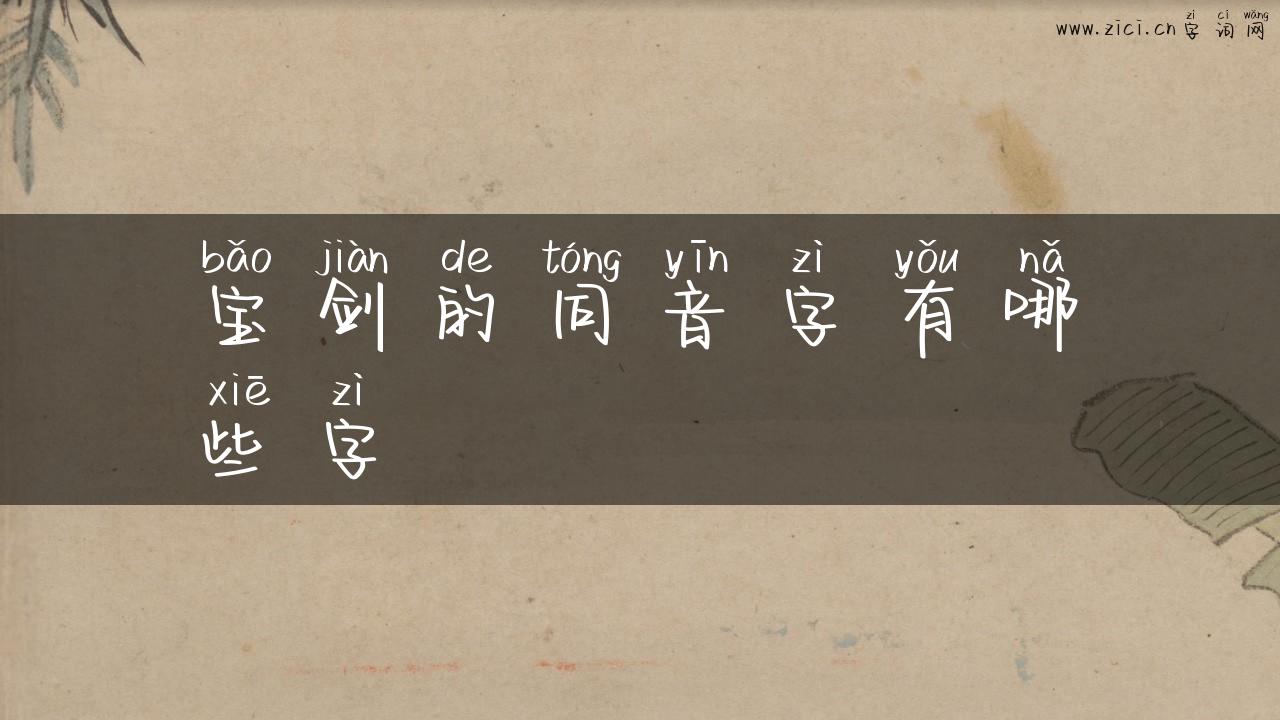 zì cí wǎng
www.zici.cn 字词网
bǎo jiàn de tóng yīn zì yǒu nǎ
宝剑的同音字有哪
xiē zì
些字